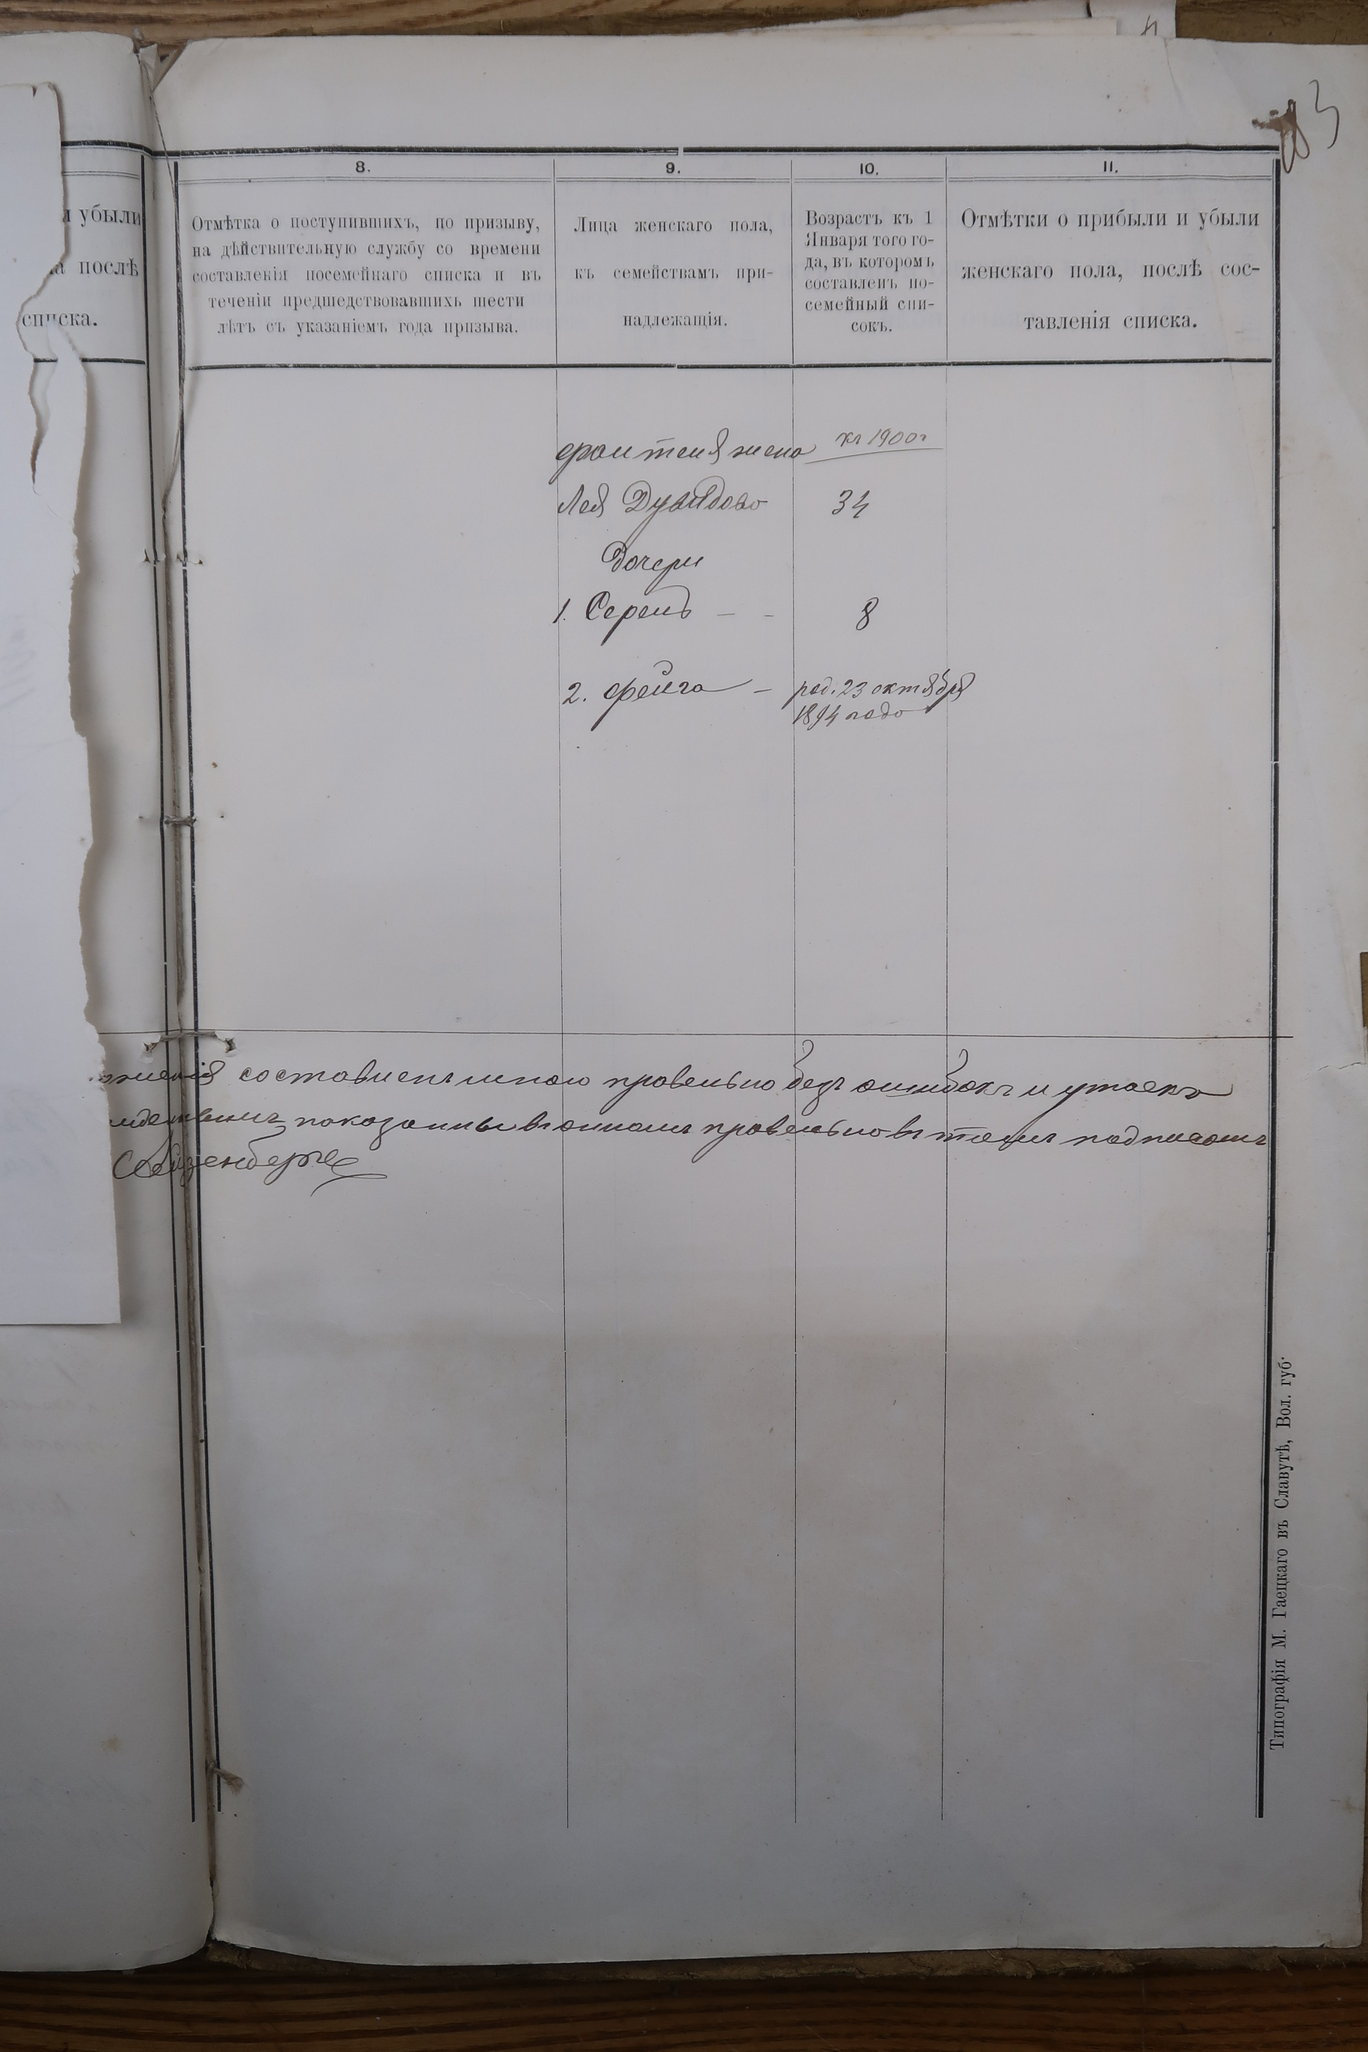 83
и убыли
послѣ
списка.
8.
Отмѣтка о поступившихъ, по призыву,
на дѣйствительную службу со времени
составленія посемейнаго списка и въ
теченіи предшедствовавшихъ шести
лѣтъ съ указаніемъ года призыва.
9.
Лица женскаго пола,
къ семействамъ при-
надлежащія.
10.
Возрастъ къ 1
Января того го-
да, въ которомъ
составленъ по-
семейный спи-
сокъ.
11.
Отмѣтки о прибыли и убыли
женскаго пола, послѣ сос-
тавленія списка.
жена
къ 1900 г
Лея Дувидова
34
дочери
1. Серель - -
8
2. Фейга -
род. 23 октября
1894 года
составленъ мною правельно безъ ошибокъ и утаекъ
показанны въ ономъ правельно въ томъ подписомъ
Типографія М. Гаецкаго въ Славутѣ, Вол. губ.